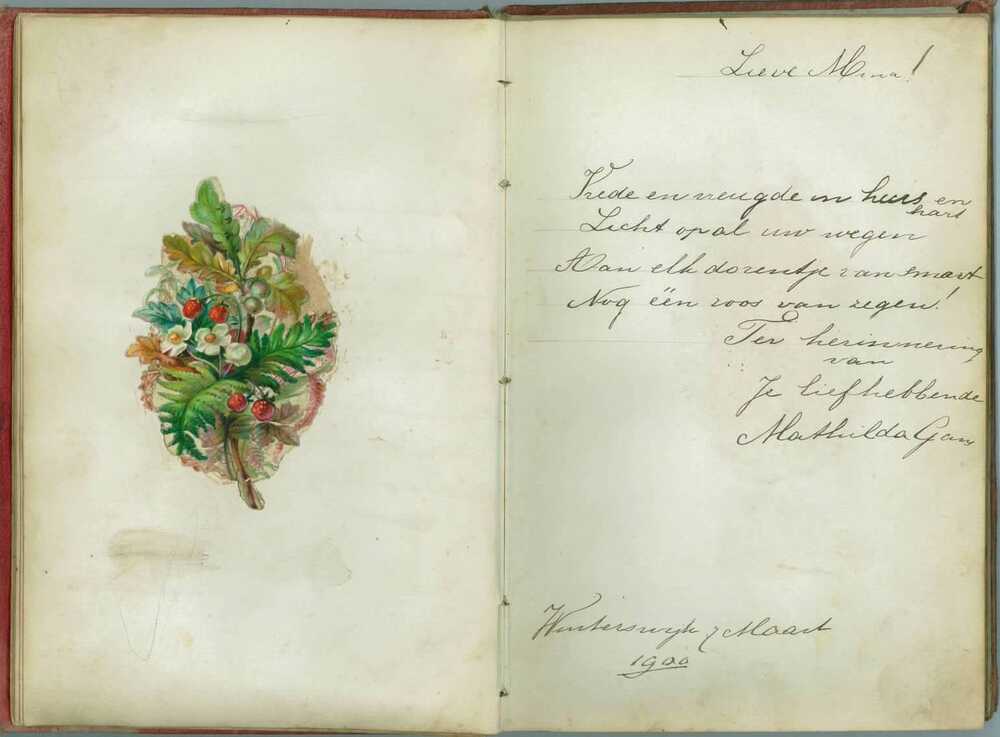 Lieve Mina!
Vrede en vreugde in huis en
hart
Licht op al uw wegen
Aan elk dorentje van smart
Nog één roos van zegen!
Ter herinnering
van
Je liefhebbende
Mathilda Gans
Winterswijk 7 Maart
1900